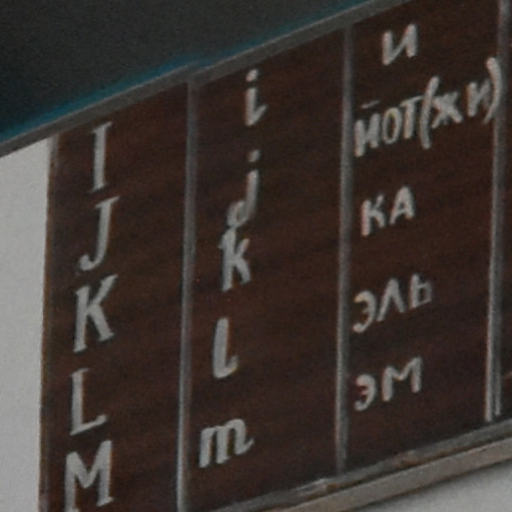 I i и
J j йот(жи)
K k ка
L l эль
M m эм